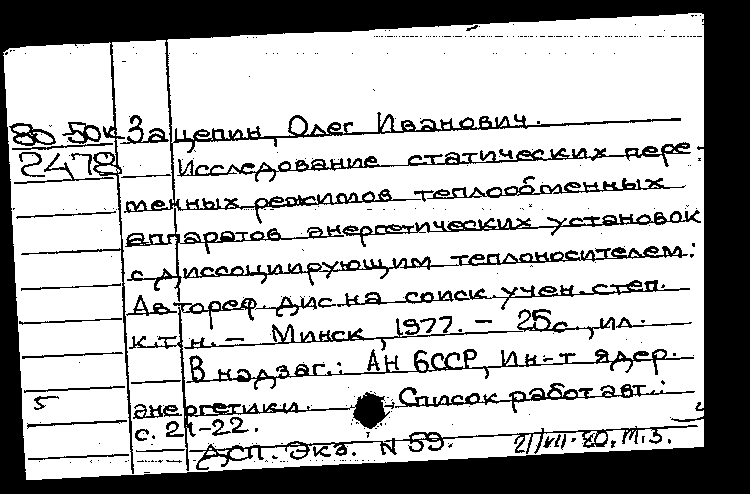 80-50к Зацепин, Олег Иванович.
2478 Исследование статических пере-
менных режимов теплообменных
аппаратов энергетических установок
с диссоциирующим теплоносителем:
Автореф. дис. на соиск. учен. степ.
к.т.н. – Минск, 1977. – 25с., ил.
В надзаг.: АН БССР, Ин-т ядер.
5 энергетики. Список работ авт.:
с. 21-22.
ДСП. Экз. N 59. 21/VII-80. М.З.